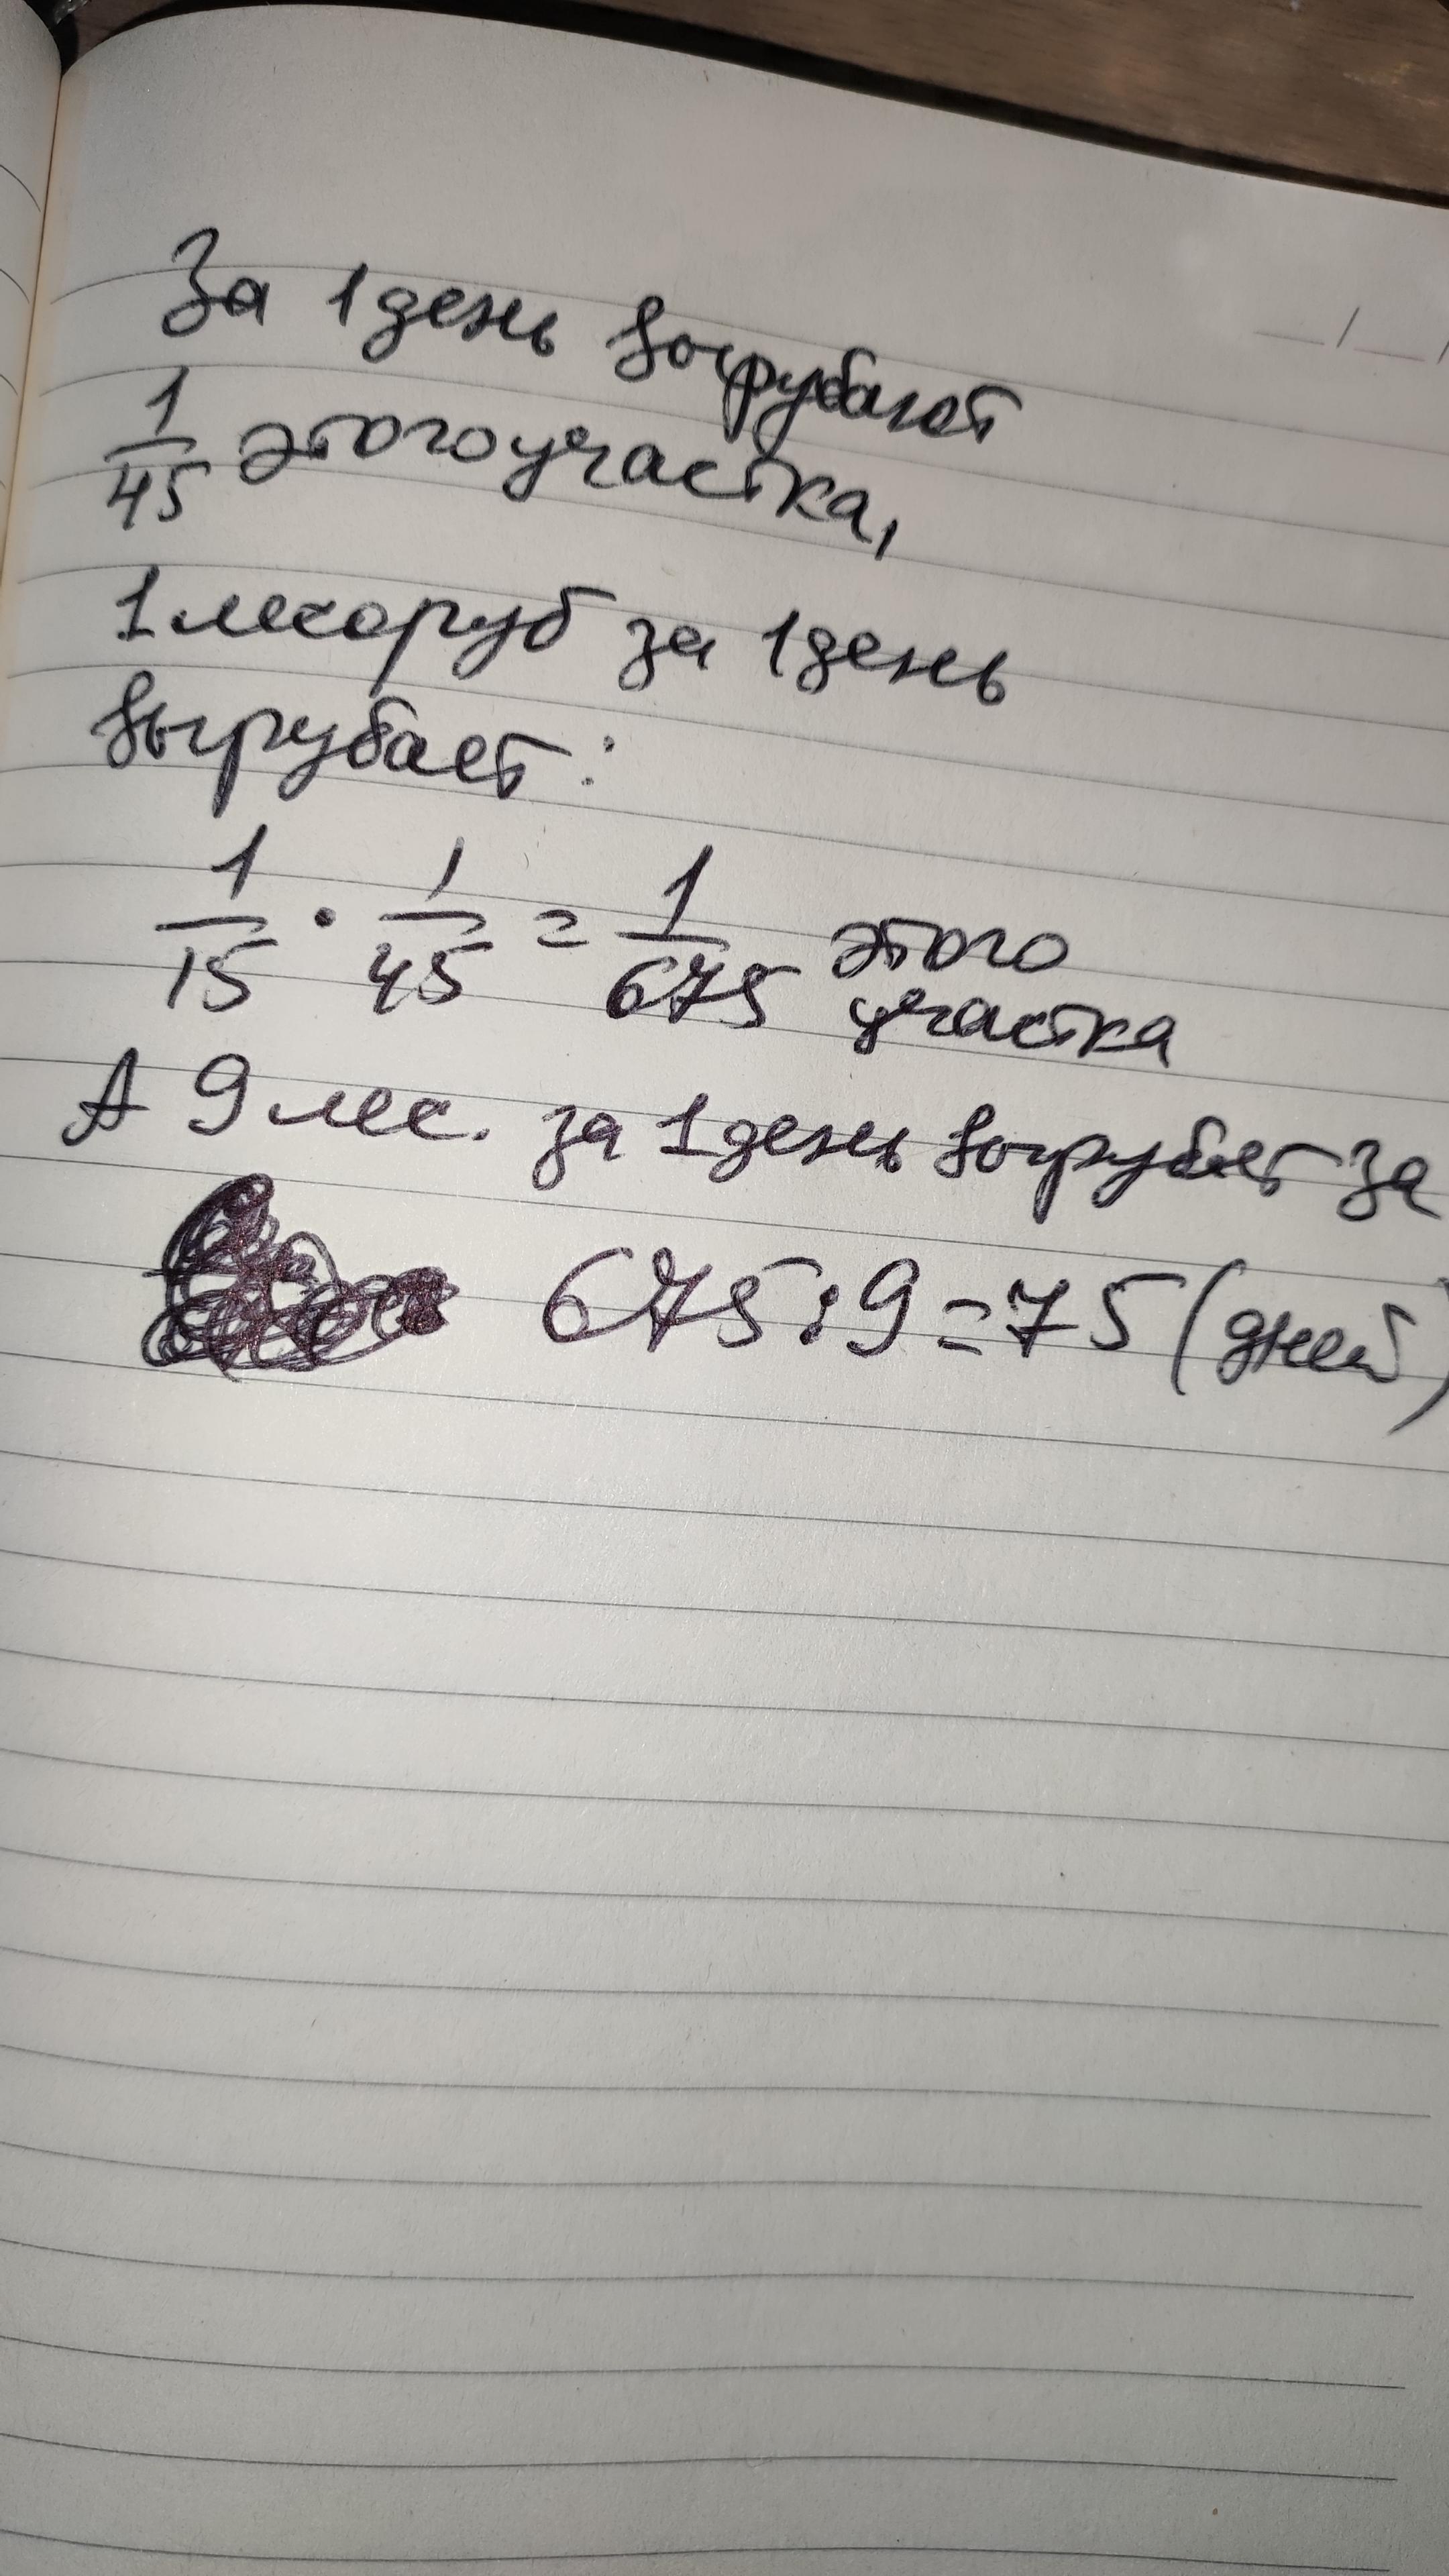 За 1 день вырубают
1/45 этого участка,
1 лесоруб за 1 день
вырубает:
1/15 · 1/45 = 1/675 этого
участка
А 9 лес. за 1 день вырубят за
675 : 9 = 75 (дней)